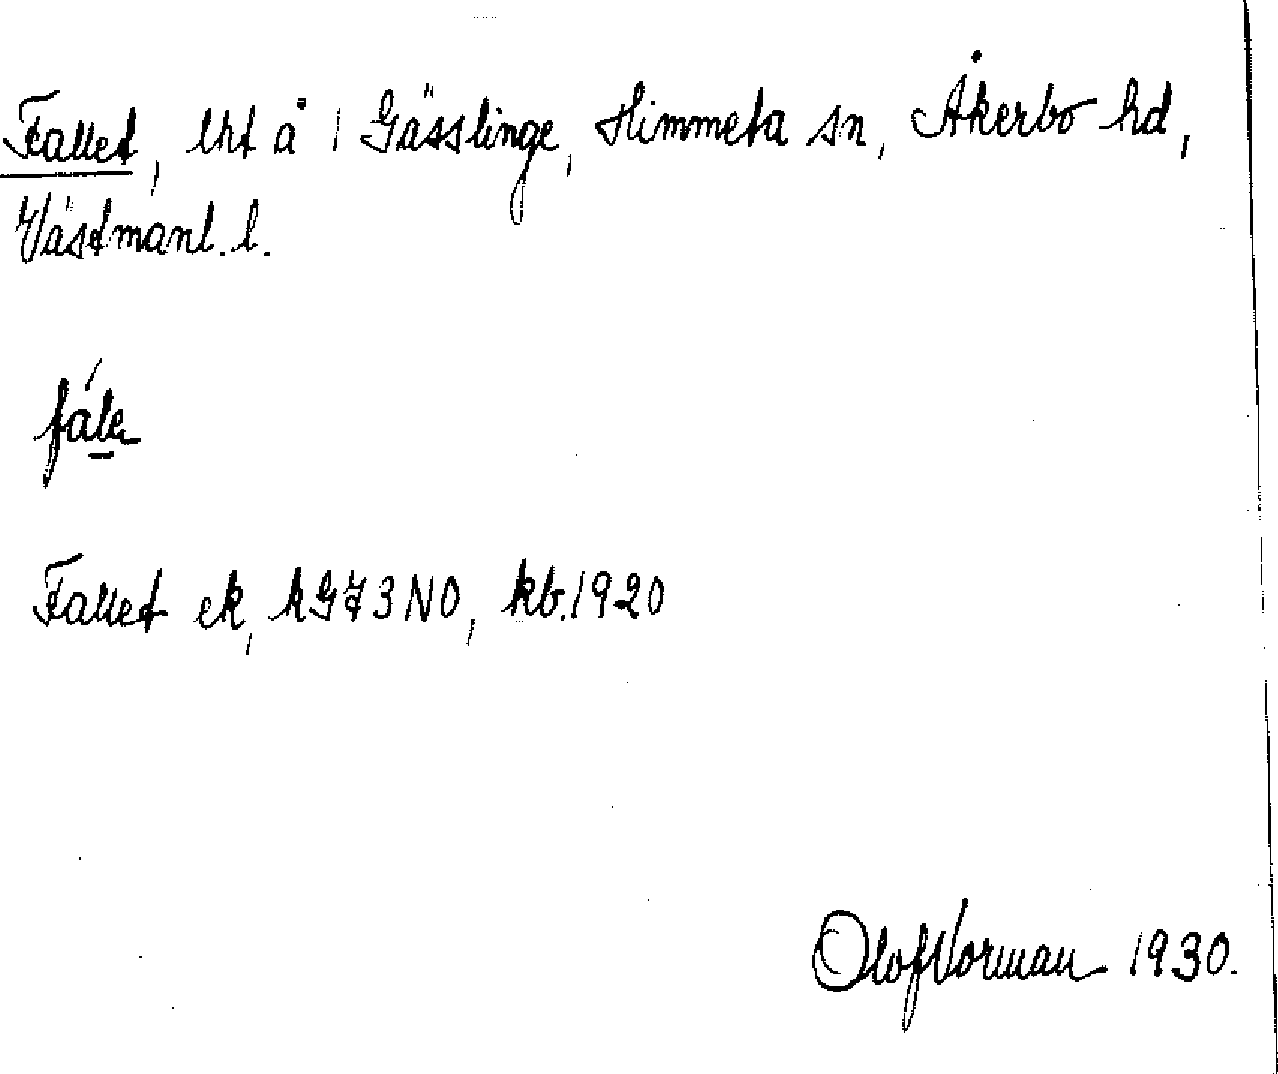 Fallet, lht å 1 Gässlinge, Himmeta sn, Åkerbo hd,
Västmanl. l.
fálə
Fallet ek, hG73NO, kb.1920
Olof Norman 1930.